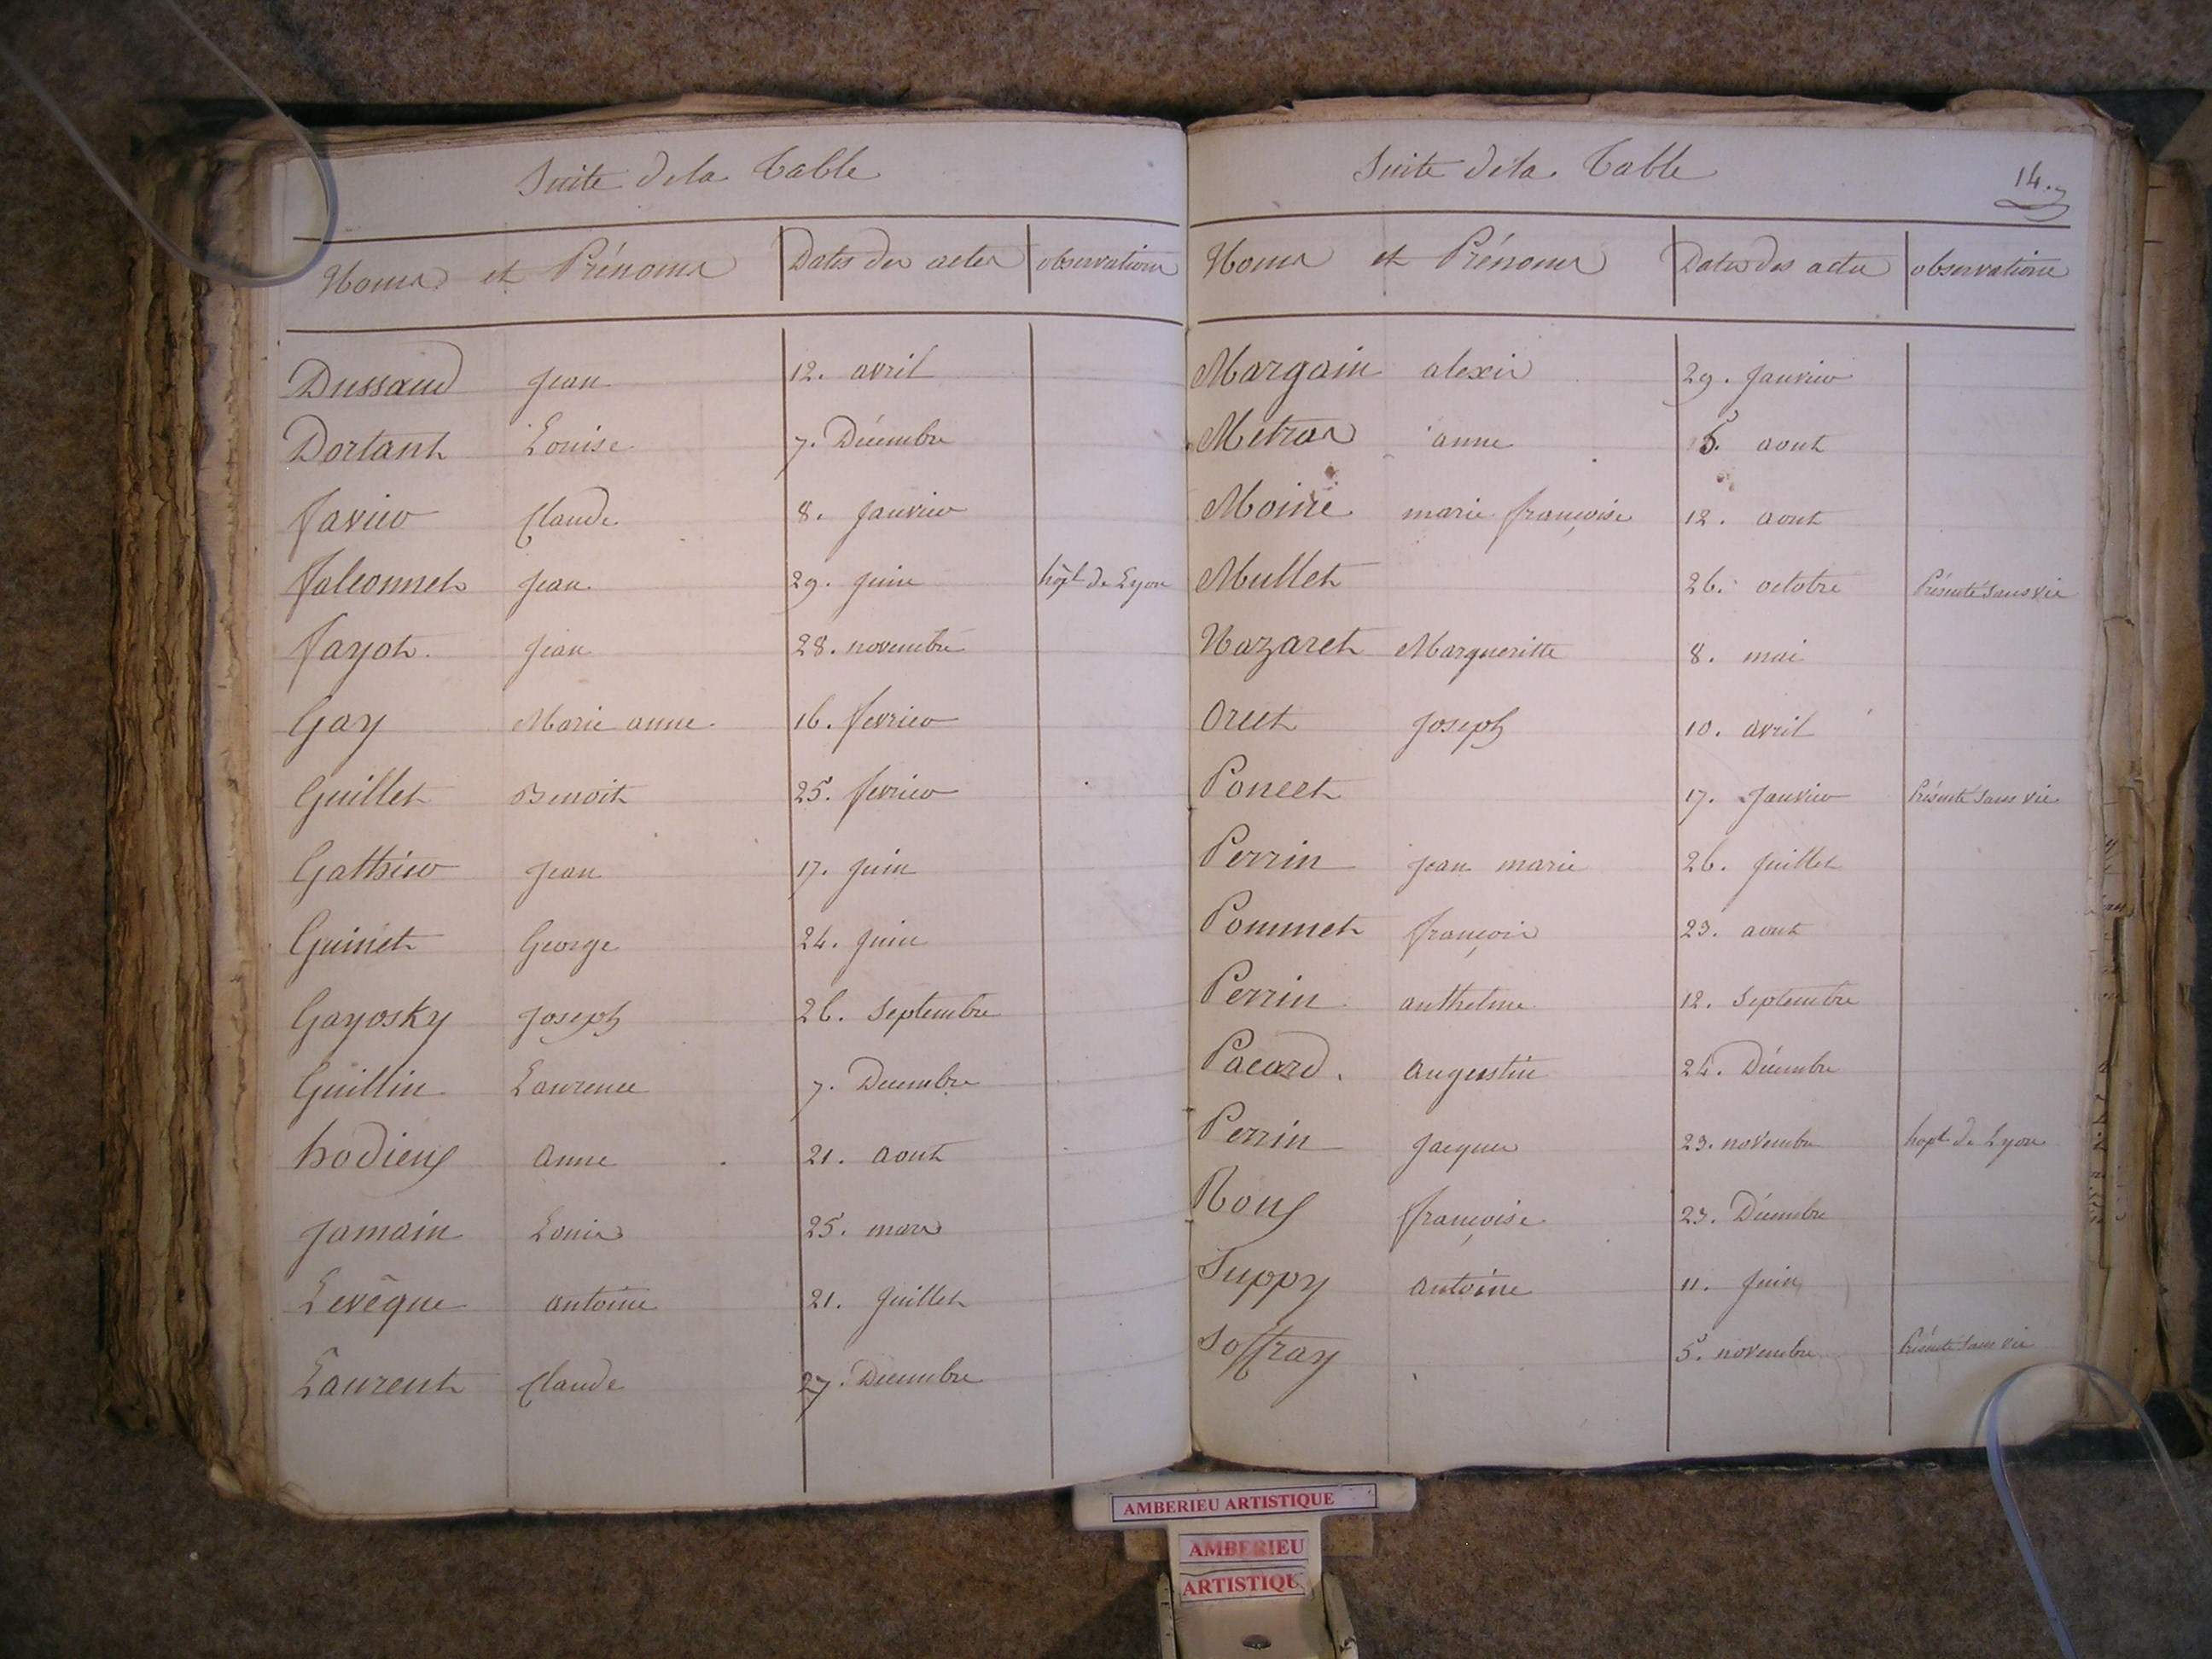 Suite de la Table
Noms et Prénoms Dates des actes observations
Dussaud Jean 12. avril
Dortant Louise 7. Décembre
Favier Claude 8. Janvier
Falconnet Jean 29. Juin hôpt de Lyon
Fayot Jean 28. novembre
Gay Marie anne 16. fevrier
Guillet Benoit 25. fevrier
Gathier Jean 17. Juin
Guinet George 24. Juin
Gayosky Joseph 26. Septembre
Guillin Laurence 7. Decembre
hodieux Anne 21. Aout
Jamain Louis 25. mars
Levêque antoine 21. Juillet
Laurent Claude 27. Decembre
Suite de la Table
14.
Noms et Prénoms Dates des actes observations
Margain alexis 29. Janvier
Metras anne 5. aout
Moine marie françoise 12. aout
Mullet 26. octobre Présenté Sans vie
Nazaret Margueritte 8. mai
Orset Joseph 10. avril
Poncet 17. Janvier Présenté Sans vie
Perrin Jean marie 26. Juillet
Pommet françois 23. aout
Perrin anthelme 12. Septembre
Pacard. Augustin 24. Décembre
Perrin Jacques 23. novembre hopt de Lyon
Roux françoise 23. Décembre
Suppy Antoine 11. Juin
Soffray 5. novembre Présenté Sans vie
AMBERIEU ARTISTIQUE
AMBERIEU
ARTISTIQUE